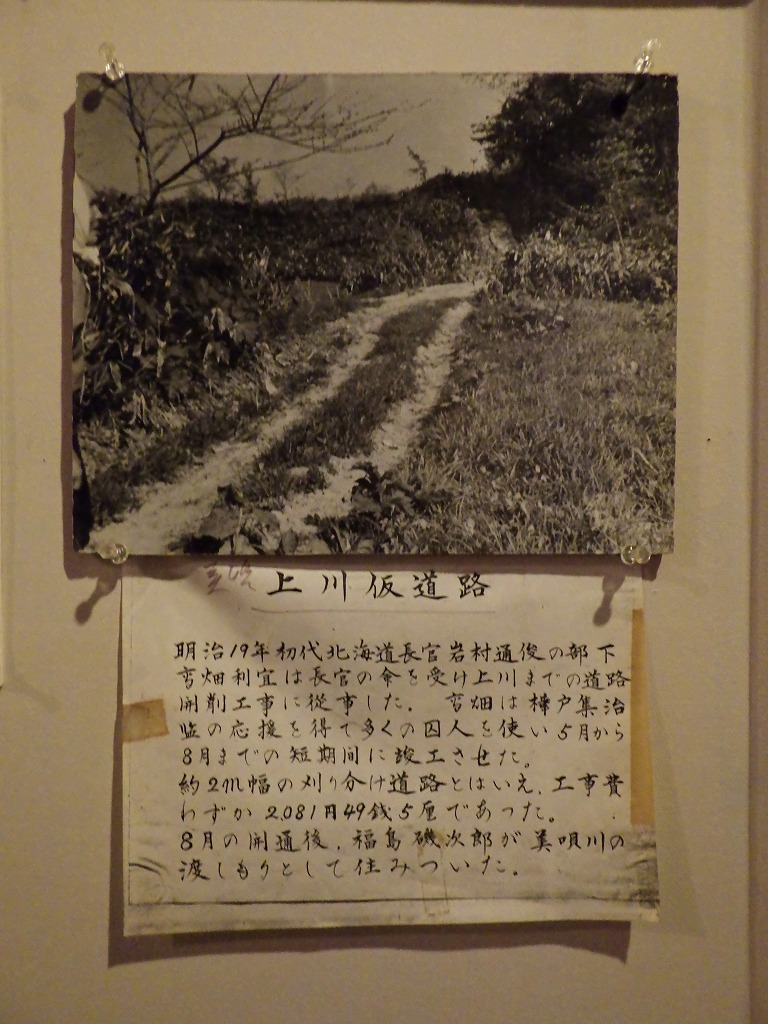 上川仮道路
明治19年初代北海道長官岩村通俊の部下
高畑利宜は長官の命を受け上川までの道路
開削工事に従事した。高畑は樺戸集治
監の応援を得て多くの囚人を使い5月から
8月までの短期間に竣工させた。
約2m幅の刈り分け道路とはいえ、工事費
わずか2.081円49銭5厘であった。
8月の開通後、福島磯次郎が美唄川の
渡しもりとして住みついた。